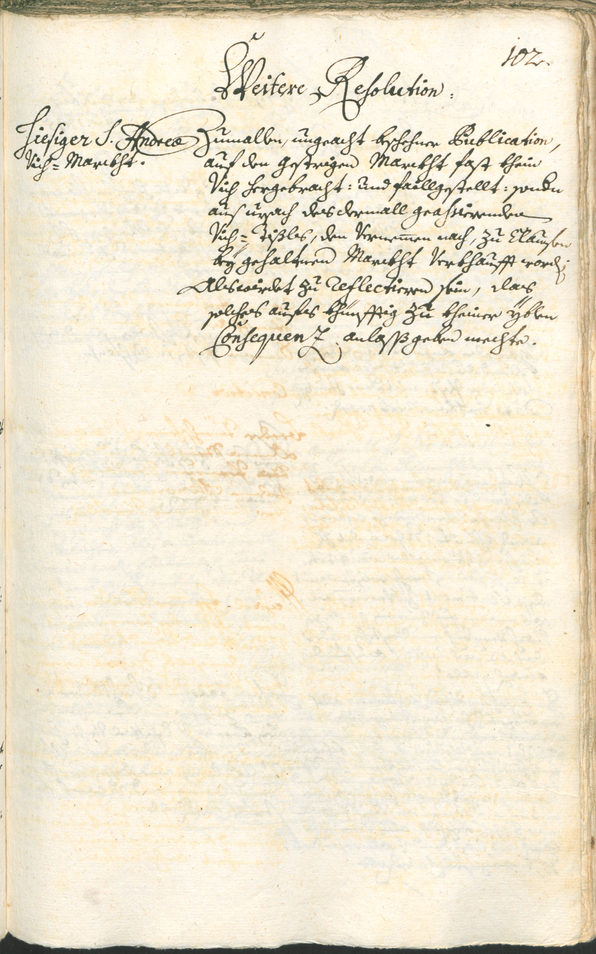 102.
Weitere Resolution:
Hiesiger S. Andreæ
Vich=Marckht.
Zumallen, ungeacht beschehner Publication,
auf den gestrigen Marckht fast khein
Vich hergebracht: und faillgestellt: sondern
aus ursach des dermall grassierenden
Vich=, den vernemen nach, zu Clausen
bey gehaltnem Marckht verkhaufft worden;
Als wirdet zu reflectieren sein, das
solches aufs khünfftig zu kheiner yblen
Consequenz anlass geben mechte.